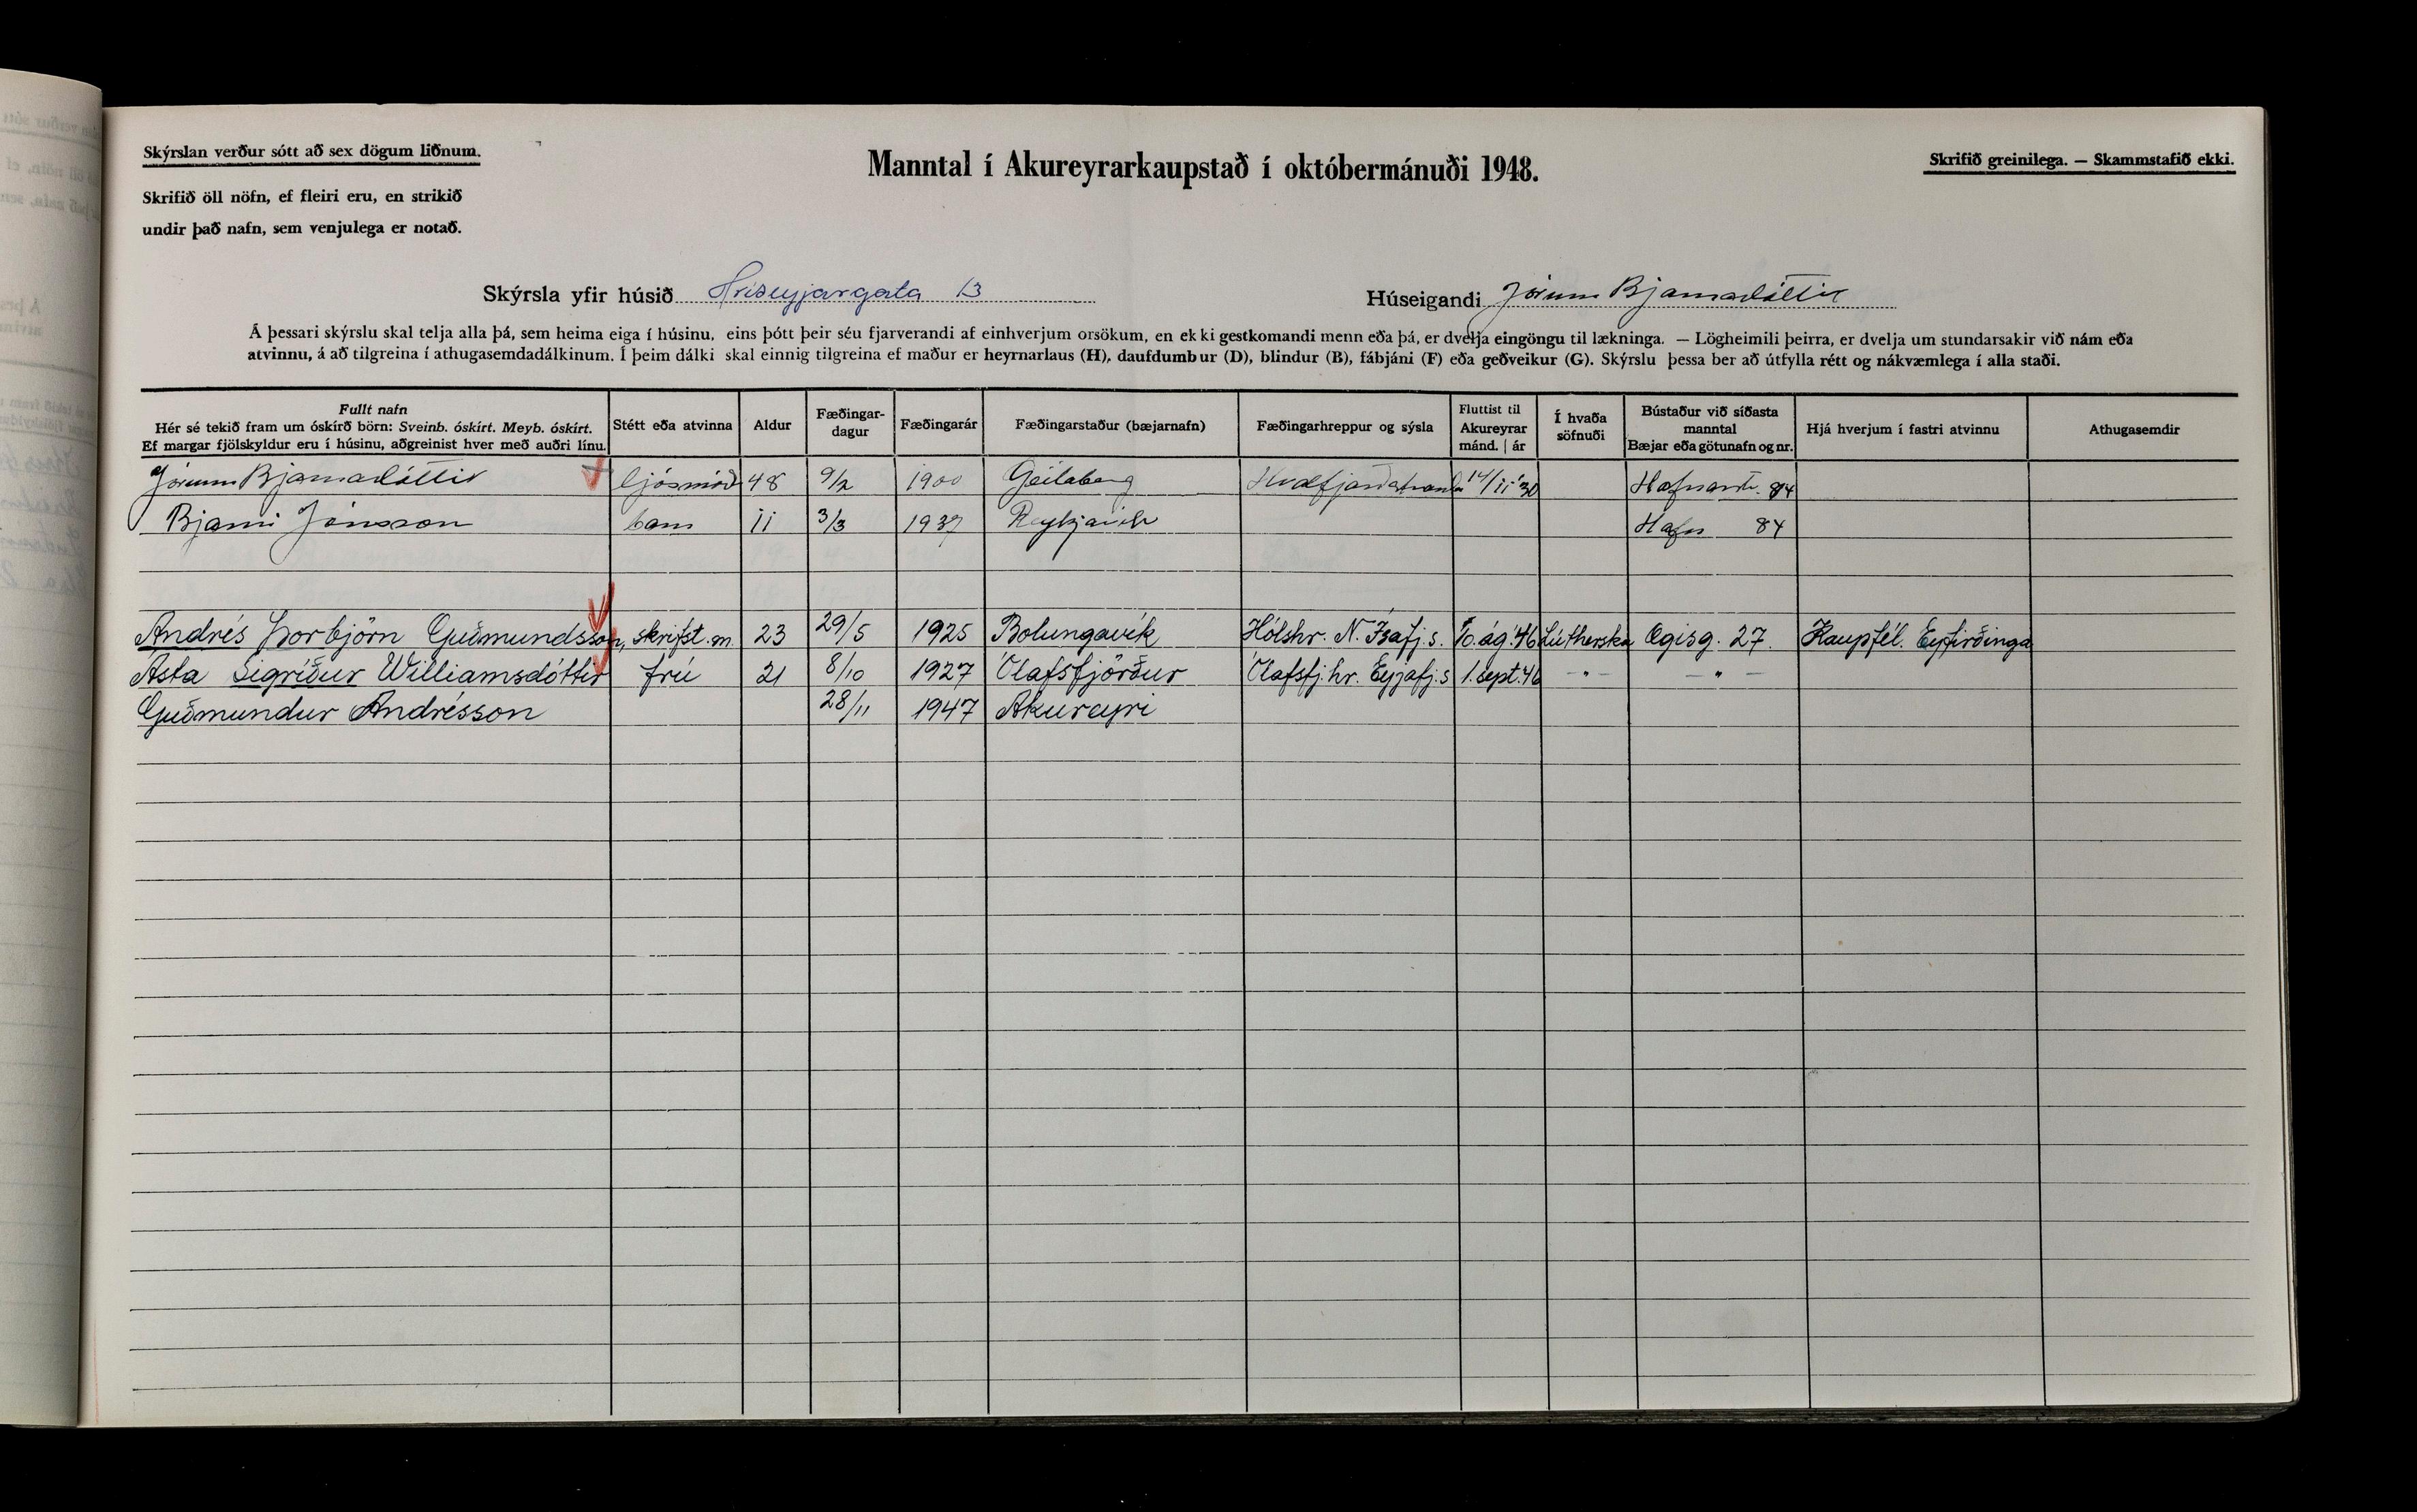 Skýrslan verður sótt að sex dögum liðnum.
Skrifið öll nöfn, ef fleiri eru, en strikið
undir það nafn, sem venjulega er notað.
Manntal í Akureyrarkaupstað í októbermánuði 1948.
Skrifið greinilega. — Skammstafið ekki.
Skýrsla yfir húsið Hríseyjargata 13
Húseigandi Jórunn Bjarnadóttir
Á þessari skýrslu skal telja alla þá, sem heima eiga í húsinu, eins þótt þeir séu fjarverandi af einhverjum orsökum, en ekki gestkomandi menn eða þá, er dvelja eingöngu til lækninga. — Lögheimili þeirra, er dvelja um stundarsakir við nám eða
atvinnu, á að tilgreina í athugasemdadálkinum. Í þeim dálki skal einnig tilgreina ef maður er heyrnarlaus (H), daufdumbur (D), blindur (B), fábjáni (F) eða geðveikur (G). Skýrslu þessa ber að útfylla rétt og nákvæmlega í alla staði.
Fullt nafn
Hér sé tekið fram um óskírð börn: Sveinb. óskírt. Meyb. óskírt.
Ef margar fjölskyldur eru í húsinu, aðgreinist hver með auðri línu.
Stétt eða atvinna
Aldur
Fæðingar-
dagur
Fæðingarár
Fæðingarstaður (bæjarnafn)
Fæðingarhreppur og sýsla
Fluttist til
Akureyrar
mánd. | ár
Í hvaða
söfnuði
Bústaður við síðasta
manntal
Bæjar eða götunafn og nr.
Hjá hverjum í fastri atvinnu
Athugasemdir
Jórunn Bjarnadóttir ljósmóð 48 9/2 1900 Geitaberg Hvalfjarðarströnd 14/11 '30 Hafnarstr. 84
Bjarni Jónsson barn 11 3/3 1937 Reykjavík Hafn 84
Andrés Þorbjörn Guðmundsson, skrifst.m. 23 29/5 1925 Bolungavík Hólshr. N. Ísafj.s. ág.'46 Lútherska Ægisg. 27. Kaupfél. Eyfirðinga
Ásta Sigríður Williamsdóttir frú 21 8/10 1927 Ólafsfjörður Ólafsfj.hr. Eyjafj.s 1.sept.'46 -"- -"-
Guðmundur Andrésson 28/11 1947 Akureyri